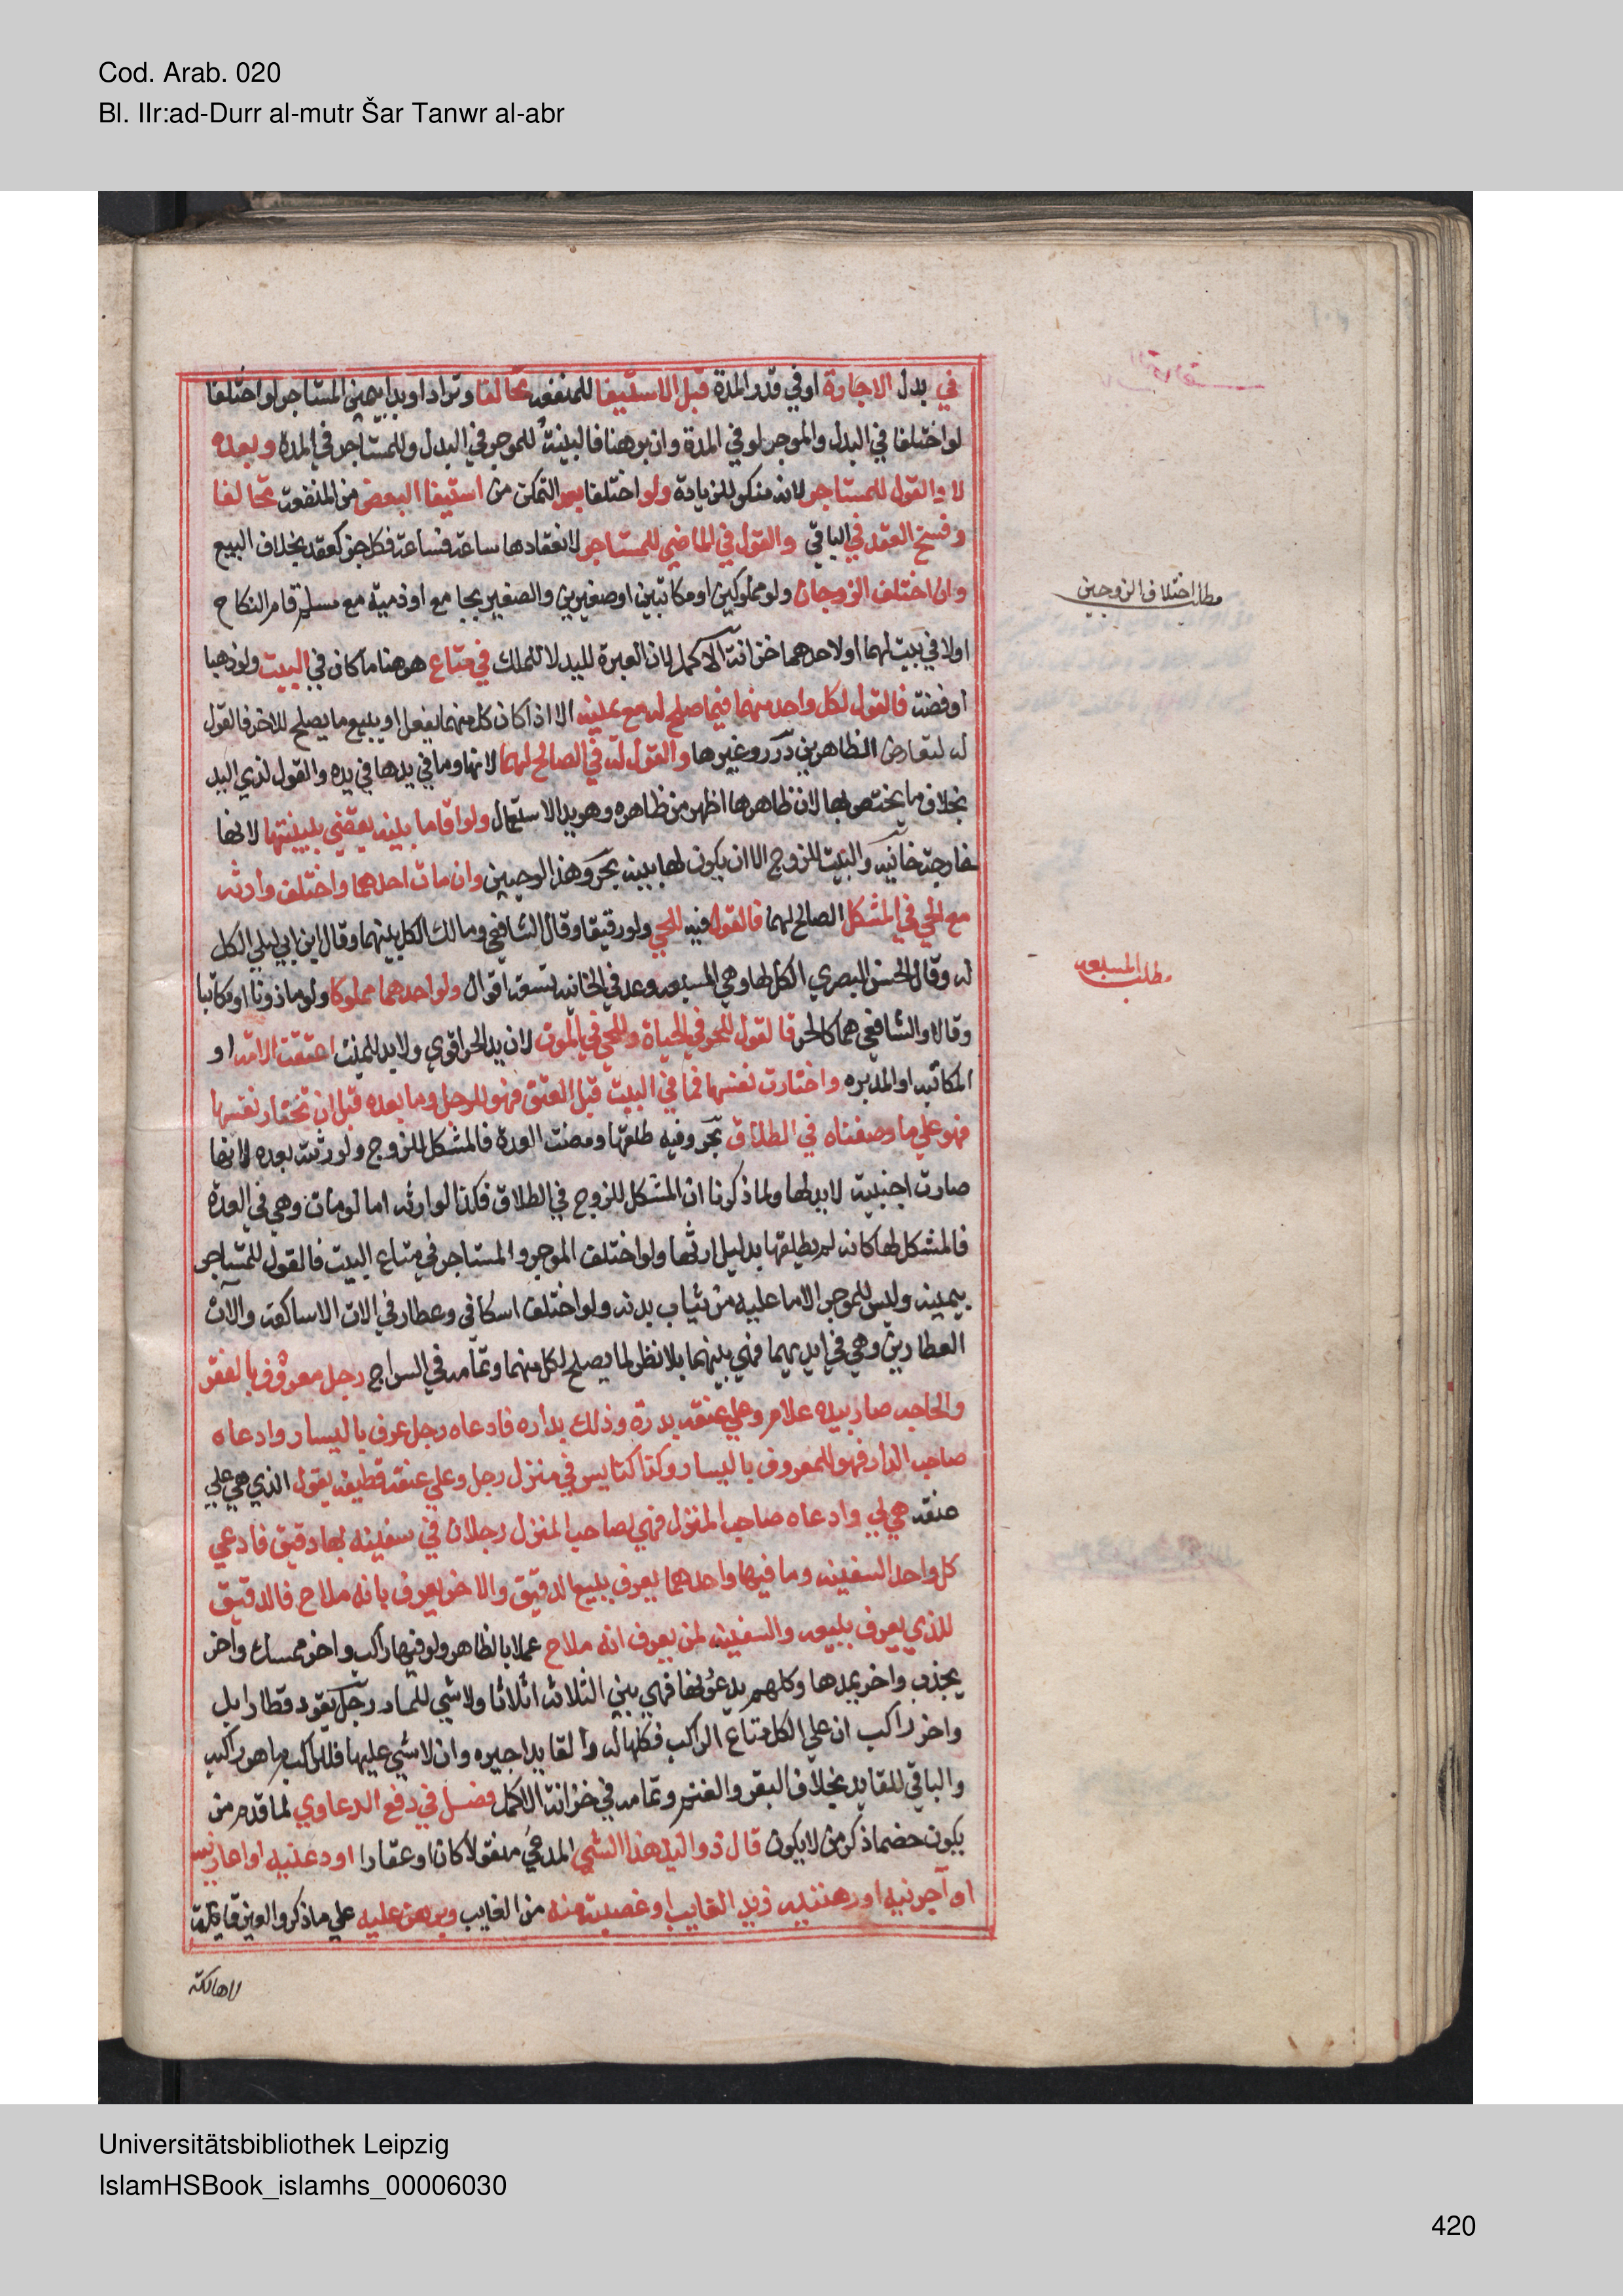 Cod. Arab. 020
Bl. IIr:ad-Durr al-mutr Šar Tanwr al-abr
في بدل الاجارة او في قدر المدة قبل الاستيفا للمنفعة تحالفا وترادا وبدا بيمين المستاجر لو اختلفا
لو اختلفا في البدل والموجر لو في المدة وان برهنا فالبينة للموجر في البدل وللمستاجر في المدة وبعده
لا والقول للمستاجر لانه منكر للزيادة ولو اختلفا بعد التمكن من استيفا البعض من المنفعة تحالفا
وفسخ العقد في الباقي والقول في الماضي للمستاجر لانعقادها ساعة فساعة فكل جز كعقد بخلاف البيع
وان اختلف الزوجان ولو مملوكين او مكاتبين او صغيرين والصغير يجامع او ذمية مع مسلم قام النكاح
مطلب اختلاف الزوجين
اولا في بيت لهما او لاحدهما خزانة الاكمل لان العبرة لليد لا للملك في متاع هو هنا ما كان في البيت ولو ذهبا
او فضة فالقول لكل واحد منهما فيما صلح له مع يمينه الا اذا كان كل منهما يفعل او يبيع ما يصلح للاخر فالقول
له لتعارض الظاهرين درر وغيرها والقول له في الصالح لهما لانها وما في يدها في يده والقول لذي اليد
بخلاف ما يختص بها لان ظاهرها اظهر من ظاهره وهو يد الاستعمال ولو اقاما بينة يقضي ببينتها لانها
خارجة خانية والبيت للزوج الا ان يكون لها بينة بحر وهذا لو حيين وان مات احدهما واختلف وارثه
مع الحي في المشكل الصالح لهما فالقول فيه للحي ولو رقيقا وقال الشافعي ومالك الكل بينهما وقال ابن ابي ليلي الكل
له وقال الحسن البصري الكل لها وهي المسبعة وعد في الخانية تسعة اقوال ولو احدهما مملوكا ولو ماذونا او مكاتبا
مطلب المسبعه
وقالا والشافعي هما كالحر فالقول للحر في الحياة وللحي في الموت لان يد الحر اقوي ولا يد للميت اعتقت الامة او
المكاتبه او المدبره واختارت نفسها فما في البيت قبل العتق فهو للرجل وما بعده قبل ان تختار نفسها
فهو علي ما وصفناه في الطلاق بحر وفيه طلقها ومضت العدة فالمشكل للزوج ولورثته بعده لانها
صارت اجنبية لا يد لها ولما ذكرنا ان المشكل للزوج في الطلاق فكذا لوارثه اما لو مات وهي في العدة
فالمشكل لها كانه لم يطلقها بدليل ارثها ولو اختلف الموجر والمستاجر في متاع البيت فالقول للمستاجر
بيمينه وليس للموجر الا ما عليه من ثياب بدنه ولو اختلف اسكافي وعطار في الات الاساكفة والات
العطارين وهي في ايديهما فهي بينهما بلا نظر لما يصلح لكل منهما وتمامه في السراج رجل معروف بالفقر
والحاجه صار بيده غلام وعلي عنقه بدرة وذلك بداره فادعاه رجل عرف باليسار وادعاه
صاحب الدار فهو للمعروف باليسار وكذا كناس في منزل رجل وعلي عنقه قطيفه يقول الذي هي علي
عنقه هي لي وادعاه صاحب المنزل فهي لصاحب المنزل رجلان في سفينه بها دقيق فادعي
كل واحد السفينه وما فيها واحدهما يعرف ببيع الدقيق والاخر يعرف بانه ملاح فالدقيق
للذي يعرف ببيعه والسفينه لمن يعرف انه ملاح عملا بالظاهر ولو فيها راكب واخر ممسك واخر
يجذب واخر يمدها وكلهم يدعونها فهي بين الثلاثه اثلاثا ولا شي للماد رجل يقود قطار ابل
واخر راكب ان علي الكل متاع الراكب فكلها له والقايد اجيره وان لا شي عليها فللراكب ما هو راكبه
والباقي للقايد بخلاف البقر والغنم وتمامه في خزانة الاكمل فصل في دفع الدعاوي لما قدم من
يكون خصما ذكر من لا يكون قال ذو اليد هذا الشي المدعي منقولا كان او عقارا اودعنيه او اعارنيه
او آجرنيه او رهننيه زيد الغايب او غصبته منه من الغايب وبرهن عليه علي ما ذكر والعين قايمة
لا هالكة
Universitätsbibliothek Leipzig
IslamHSBook_islamhs_00006030
420